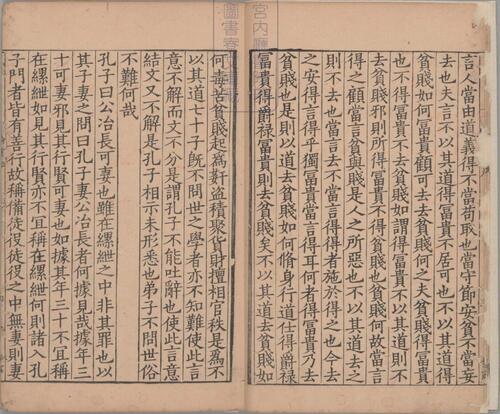 言人當由道義得不當苟取也當守節安貧不當妄
去也夫言不以其道得富貴不居可也不以其道得
貧賤如何富貴顧可去去貧賤何之夫貧賤得富貴
也不得富貴不去貧賤如謂得富貴不以其道則不
去貧賤邪則所得富貴不得貧賤也貧賤何故當言
得之顧當言貧與賤是人之所惡也不以其道去之
則不去也當言去不當言得得者施於得之也今去
之安得言得乎獨富貴當言得耳何者得富貴乃去
貧賤也是則以道去貧賤如何脩身行道仕得爵祿
富貴得爵祿富貴則去貧賤矣不以其道去貧賤如
何毒苦貧賤起爲姧盗積聚貨財擅相官秩是爲不
以其道七十子旣不問世之學者亦不知難使此言
意不解而文不分是謂孔子不能吐辭也使此言意
結文又不解是孔子相示未形悉也弟子不問世俗
不難何哉
孔子曰公冶長可妻也雖在縲絏之中非其罪也以
其子妻之問曰孔子妻公冶長者何據見哉據年三
十可妻邪見其行賢可妻也如據其年三十不宜稱
在縲絏如見其行賢亦不宜稱在縲絏何則諸入孔
子門者皆有善行故稱備徒役徒役之中無妻則妻